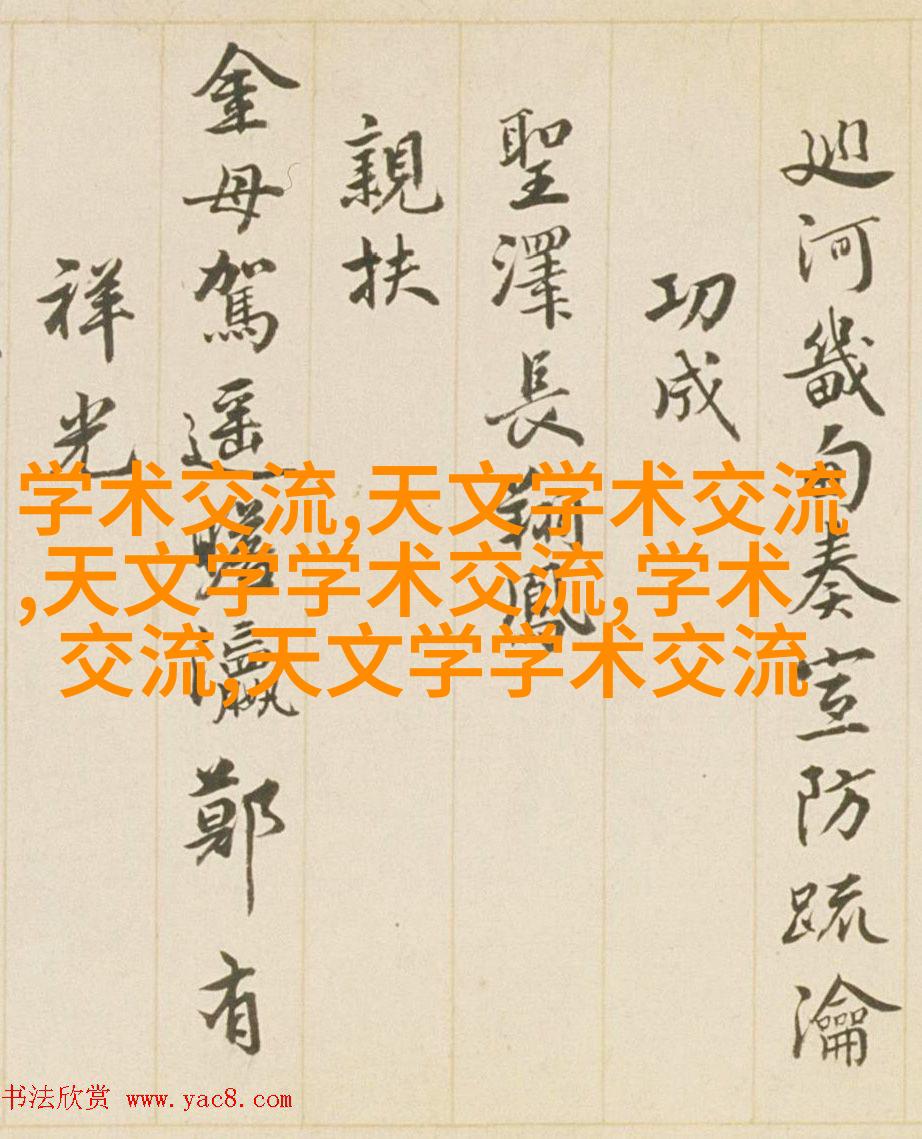 廵河畿甸奏宣防疏瀹
功成
聖澤長翔鳳
親扶
金母駕遥瞻瀛鄭有
祥光
学术交流,天文学术交流
,天文学学术交流,学术
交流,天文学学术交流
书法欣赏 www.yac8.com